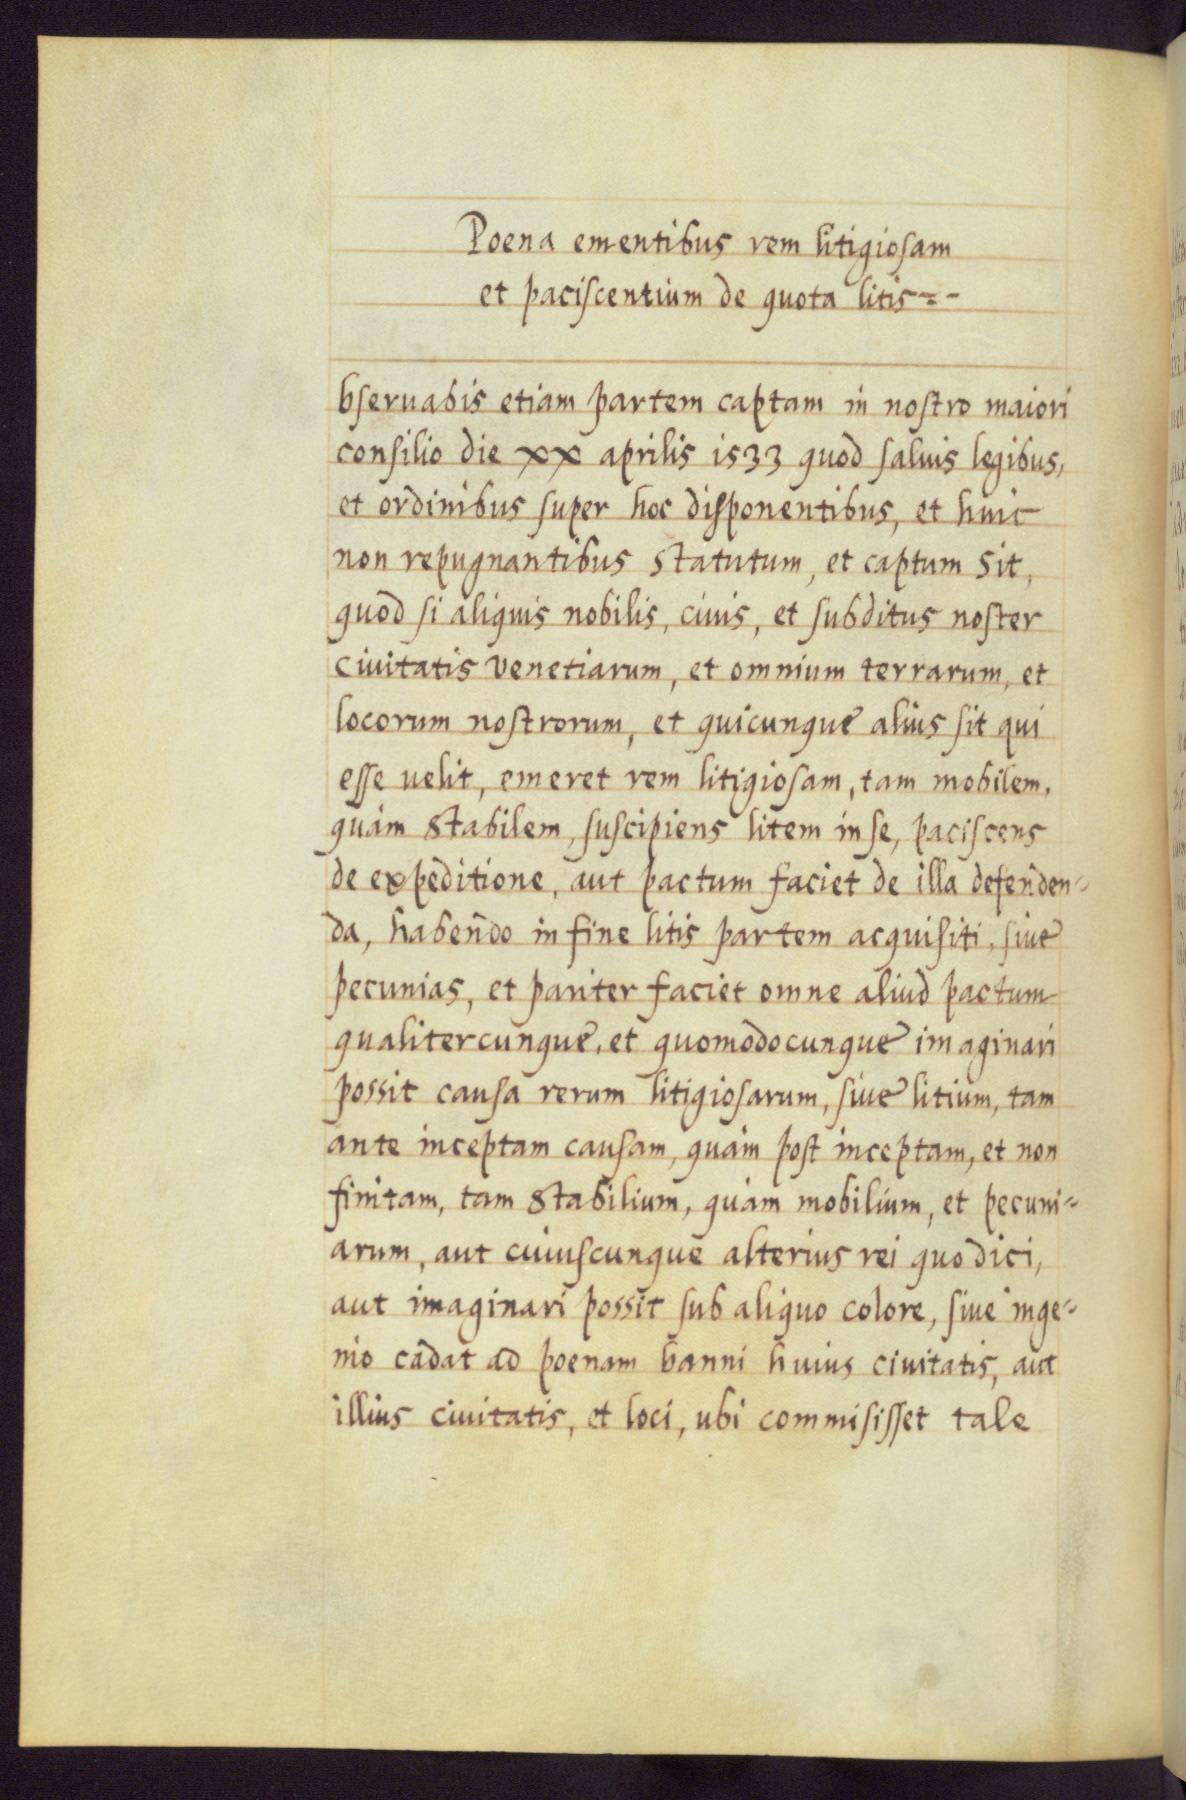 Poena ementibus rem litigiosam
et paciscentium de quota litis=-
bseruabis etiam partem captam in nostro maiori
consilio die xx aprilis 1533 quod saluis legibus,
et ordinibus super hoc disponentibus, et huic
non repugnantibus statutum, et captum sit,
quod si aliquis nobilis, ciuis, et subditus noster
ciuitatis venetiarum, et omnium terrarum, et
locorum nostrorum, et quicunque alius sit qui
esse uelit, emeret rem litigiosam, tam mobilem,
quàm stabilem, suscipiens litem in se, paciscens
de expeditione, aut pactum faciet de illa defenden=
da, habendo in fine litis partem acquisiti, siue
pecunias, et pariter faciet omne aliud pactum
qualitercunque, et quomodocunque imaginari
possit causa rerum litigiosarum, siue litium, tam
ante inceptam causam, quàm post inceptam, et non
finitam, tam stabilium, quàm mobilium, et pecuni=
arum, aut cuiuscunque alterius rei quo dici,
aut imaginari possit sub aliquo colore, siue inge=
nio cadat ad poenam banni huius ciuitatis, aut
illius ciuitatis, et loci, ubi commisisset tale